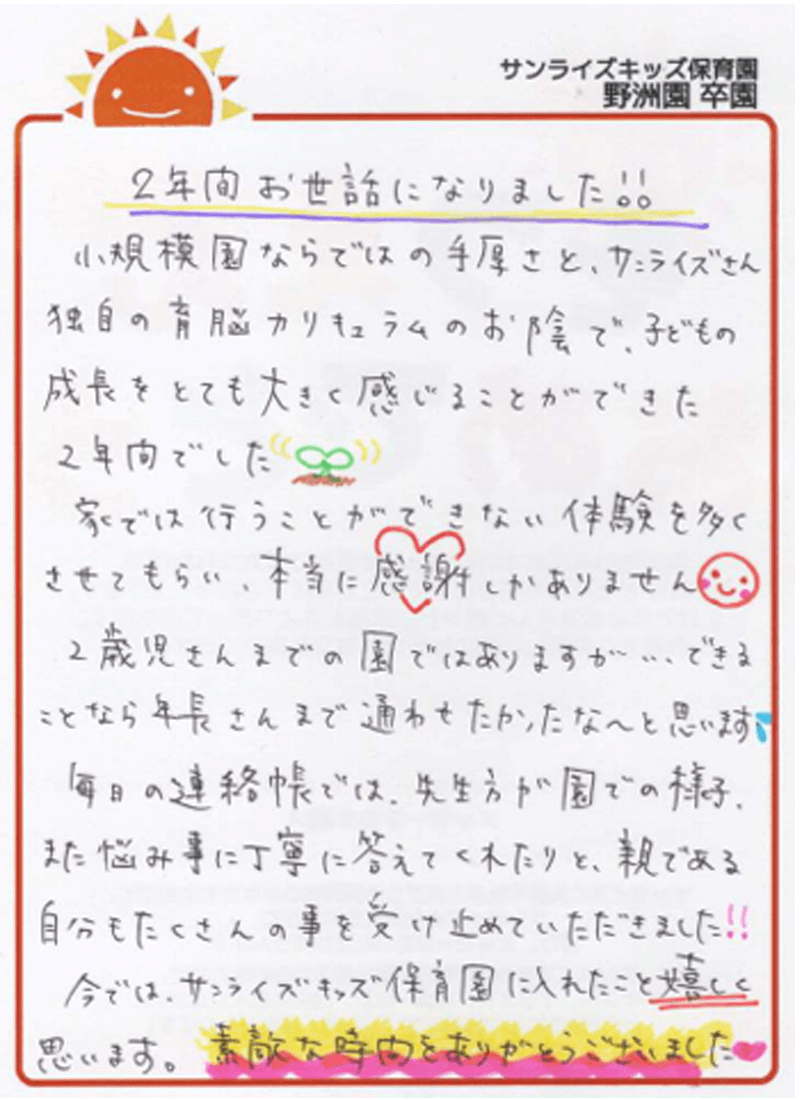 サンライズキッズ保育園
野洲園 卒園
2年間お世話になりました!!
小規模園ならではの手厚さと、サンライズさん
独自の育脳カリキュラムのお陰で、子どもの
成長をとても大きく感じることができた
2年間でした
家では行うことができない体験を多く
させてもらい、本当に感謝しかありません
2歳児さんまでの園ではありますが…できる
ことなら年長さんまで通わせたかったな〜と思います
毎日の連絡帳では、先生方が園での様子、
また悩み事に丁寧に答えてくれたりと、親である
自分もたくさんの事を受け止めていただきました!!
今では、サンライズキッズ保育園に入れたこと嬉しく
思います。素敵な時間をありがとうございました